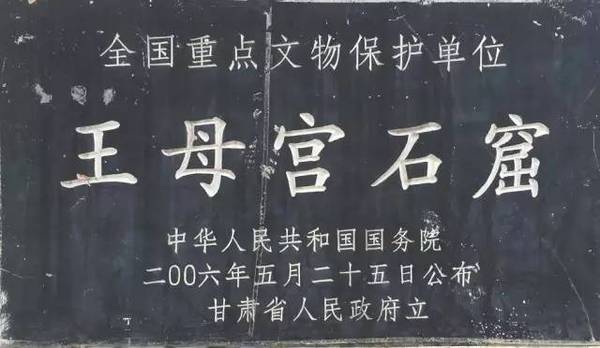 全国重点文物保护单位
王母宫石窟
中华人民共和国国务院
二〇〇六年五月二十五日公布
甘肃省人民政府立